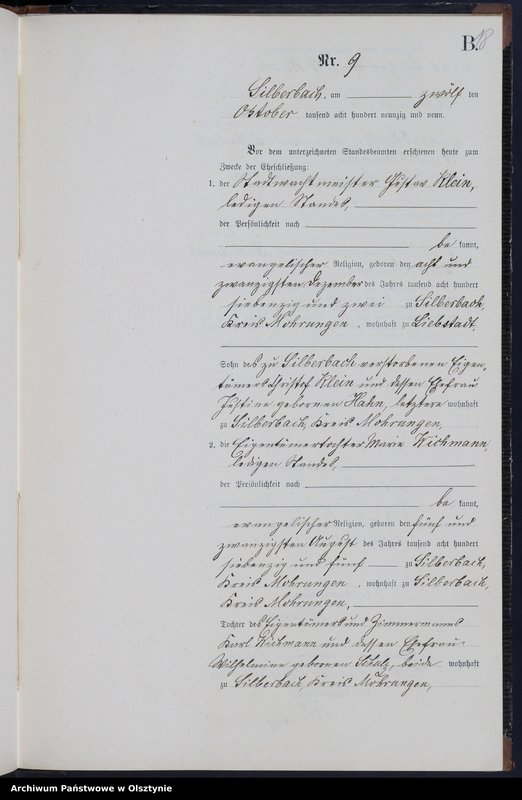 B.
18
Nr. 9
Silberbach, am zwölf ten
Oktober tausend acht hundert neunzig und neun.
Vor dem unterzeichneten Standesbeamten erschienen heute zum
Zwecke der Eheschließung:
1. der Stadtwachtmeister Gustav Klein,
ledigen Standes,
der Persönlichkeit nach
be kannt,
evangelischer Religion, geboren den acht und
zwanzigsten Dezember des Jahres tausend acht hundert
siebenzig und zwei zu Silberbach,
Kreis Mohrungen, wohnhaft zu Liebstadt,
Sohn des zu Silberbach verstorbenen Eigen,
tümers Christof Klein und dessen Ehefrau
Justine geborenen Hahn, letztere wohnhaft
zu Silberbach, Kreis Mohrungen,
2. die Eigentümertochter Marie Wichmann,
ledigen Standes,
der Persönlichkeit nach
be kannt,
evangelischer Religion, geboren den fünf und
zwanzigsten August des Jahres tausend acht hundert
siebenzig und fünf zu Silberbach,
Kreis Mohrungen, wohnhaft zu Silberbach,
Kreis Mohrungen,
Tochter des Eigentümers und Zimmermanns
Karl Wichmann und dessen Ehefrau
Wilhelmine geborenen Schulz, beide wohnhaft
zu Silberbach, Kreis Mohrungen,
Archiwum Państwowe w Olsztynie